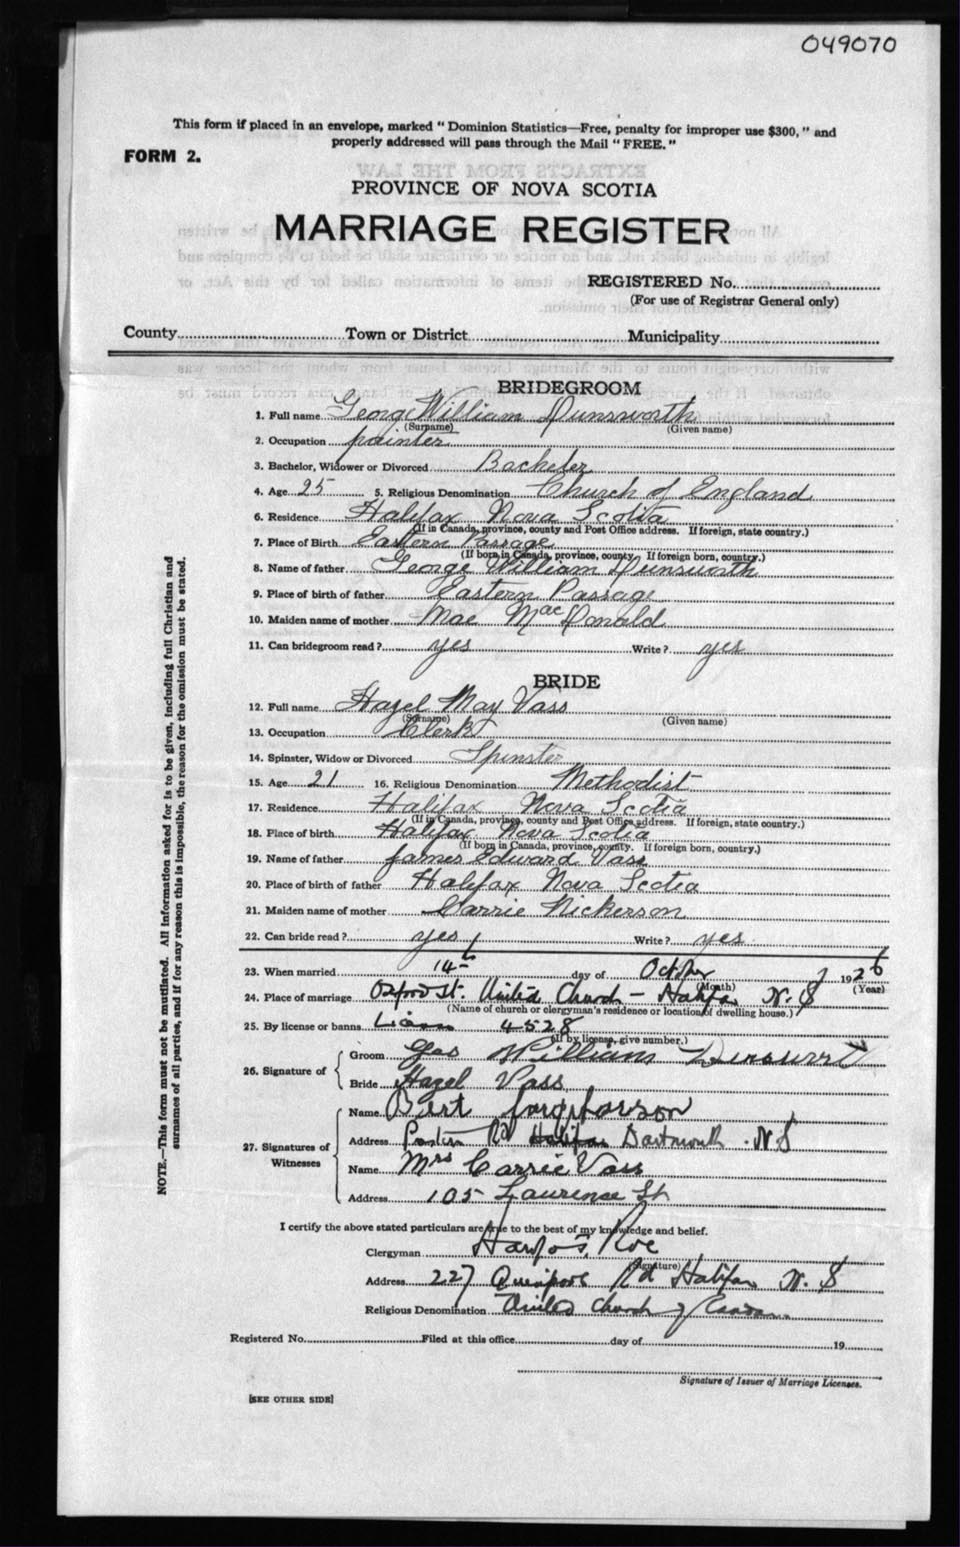 049070
This form if placed in an envelope, marked "Dominion Statistics—Free, penalty for improper use $300," and
properly addressed will pass through the Mail "FREE."
FORM 2.
PROVINCE OF NOVA SCOTIA
MARRIAGE REGISTER
REGISTERED No.
(For use of Registrar General only)
County Town or District Municipality
BRIDEGROOM
1. Full name George William Dunsworth
(Surname) (Given name)
2. Occupation painter
3. Bachelor, Widower or Divorced Bachelor
4. Age 25 5. Religious Denomination Church of England
6. Residence Halifax Nova Scotia
(If in Canada, province, county and Post Office address. If foreign, state country.)
7. Place of Birth Eastern Passage
(If born in Canada, province, county. If foreign born, country.)
8. Name of father George William Dunsworth
9. Place of birth of father Eastern Passage
10. Maiden name of mother Mae MacDonald
11. Can bridegroom read? yes Write? yes
BRIDE
12. Full name Hazel May Vass
(Surname) (Given name)
13. Occupation Clerk
14. Spinster, Widow or Divorced Spinster
15. Age 21 16. Religious Denomination Methodist
17. Residence Halifax Nova Scotia
(If in Canada, province, county and Post Office address. If foreign, state country.)
18. Place of birth Halifax Nova Scotia
(If born in Canada, province, county. If foreign born, country.)
19. Name of father James Edward Vass
20. Place of birth of father Halifax Nova Scotia
21. Maiden name of mother Carrie Nickerson
22. Can bride read? yes Write? yes
23. When married 14th day of October 1926
(Month) (Year)
24. Place of marriage Oxford St. United Church - Halifax N.S
(Name of church or clergyman's residence or location of dwelling house.)
25. By license or banns 4528
(If by license, give number.)
26. Signature of
Groom Geo William
Bride Hazel Vass
27. Signatures of Witnesses
Name Bert
Address Rd Halifax Dartmouth. N S
Name Mrs Carrie Vass
Address 105 Laurence St
I certify the above stated particulars are true to the best of my knowledge and belief.
Clergyman Roe
(Signature)
Address 227 Quinpool Rd Halifax N. S
Religious Denomination United Church of Canada
Registered No. Filed at this office day of 19
Signature of Issuer of Marriage Licenses.
[SEE OTHER SIDE]
NOTE.—This form must not be mutilated. All information asked for is to be given, including full Christian and
surnames of all parties, and if for any reason this is impossible, the reason for the omission must be stated.